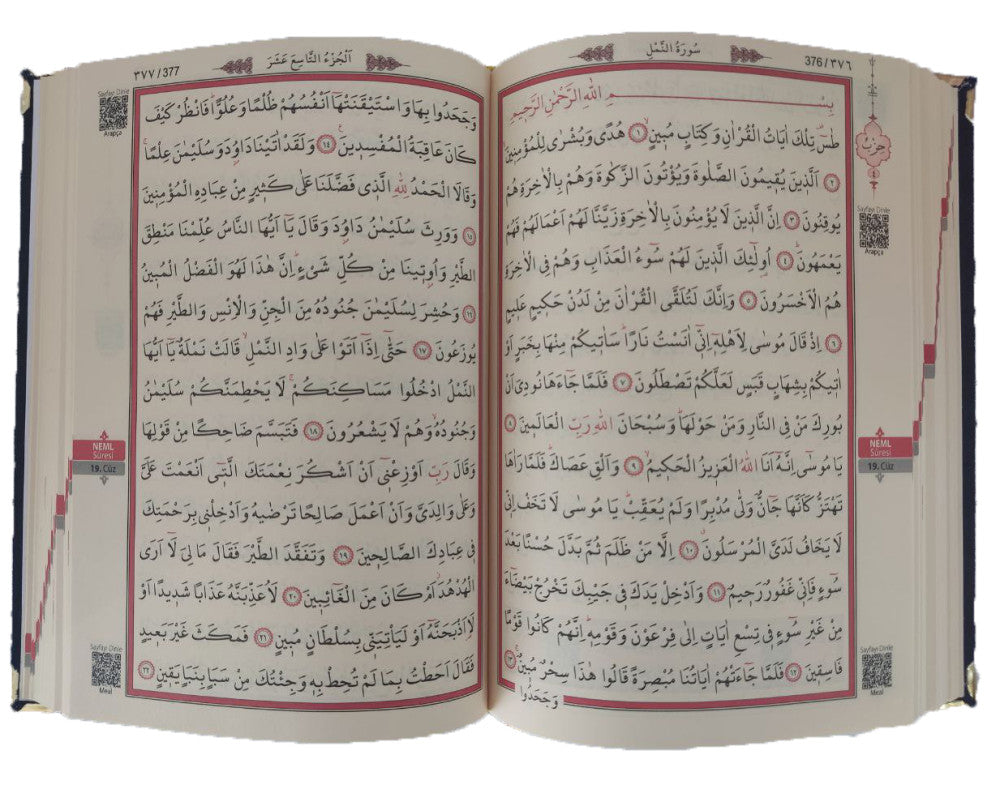 376/٣٧٦
سُورَةُ النَّمْلِ
بِسْــــــمِ اللّٰهِ الرَّحْمٰنِ الرَّحٖيمِ
طٰسٓ تِلْكَ اٰيَاتُ الْقُرْاٰنِ وَكِتَابٍ مُبٖينٍۙ ﴿١﴾ هُدًى وَبُشْرٰى لِلْمُؤْمِنٖينَ
﴿٢﴾ اَلَّذٖينَ يُقٖيمُونَ الصَّلٰوةَ وَيُؤْتُونَ الزَّكٰوةَ وَهُمْ بِالْاٰخِرَةِ هُمْ
يُوقِنُونَ ﴿٣﴾ اِنَّ الَّذٖينَ لَا يُؤْمِنُونَ بِالْاٰخِرَةِ زَيَّنَّا لَهُمْ اَعْمَالَهُمْ فَهُمْ
يَعْمَهُونَۜ ﴿٤﴾ اُولٰٓئِكَ الَّذٖينَ لَهُمْ سُٓوءُ الْعَذَابِ وَهُمْ فِى الْاٰخِرَةِ
هُمُ الْاَخْسَرُونَ ﴿٥﴾ وَاِنَّكَ لَتُلَقَّى الْقُرْاٰنَ مِنْ لَدُنْ حَكٖيمٍ عَلٖيمٍ
﴿٦﴾ اِذْ قَالَ مُوسٰى لِاَهْلِهٖٓ اِنّٖٓى اٰنَسْتُ نَارًاۜ سَاٰتٖيكُمْ مِنْهَا بِخَبَرٍ اَوْ
اٰتٖيكُمْ بِشِهَابٍ قَبَسٍ لَعَلَّكُمْ تَصْطَلُونَ ﴿٧﴾ فَلَمَّا جَٓاءَهَا نُودِىَ اَنْ
بُورِكَ مَنْ فِى النَّارِ وَمَنْ حَوْلَهَاۜ وَسُبْحَانَ اللّٰهِ رَبِّ الْعَالَمٖينَ ﴿٨﴾
يَا مُوسٰٓى اِنَّهُٓ اَنَا اللّٰهُ الْعَزٖيزُ الْحَكٖيمُۙ ﴿٩﴾ وَاَلْقِ عَصَاكَۜ فَلَمَّا رَاٰهَا
تَهْتَزُّ كَاَنَّهَا جَٓانٌّ وَلّٰى مُدْبِرًا وَلَمْ يُعَقِّبْۜ يَا مُوسٰى لَا تَخَفْ اِنّٖى
لَا يَخَافُ لَدَىَّ الْمُرْسَلُونَۗ ﴿١٠﴾ اِلَّا مَنْ ظَلَمَ ثُمَّ بَدَّلَ حُسْنًا بَعْدَ
سُٓوءٍ فَاِنّٖى غَفُورٌ رَحٖيمٌ ﴿١١﴾ وَاَدْخِلْ يَدَكَ فٖى جَيْبِكَ تَخْرُجْ بَيْضَٓاءَ
مِنْ غَيْرِ سُٓوءٍ فٖى تِسْعِ اٰيَاتٍ اِلٰى فِرْعَوْنَ وَقَوْمِهٖۜ اِنَّهُمْ كَانُوا قَوْمًا
فَاسِقٖينَ ﴿١٢﴾ فَلَمَّا جَٓاءَتْهُمْ اٰيَاتُنَا مُبْصِرَةً قَالُوا هٰذَا سِحْرٌ مُبٖينٌۚ ﴿١٣﴾
وَجَحَدُوا
حزب
٤
Sayfayı Dinle
Arapça
NEML
Sûresi
19. Cüz
Sayfayı Dinle
Meal
اَلْجُزْءُ التَّاسِعَ عَشَرَ
٣٧٧/377
وَجَحَدُوا بِهَا وَاسْتَيْقَنَتْهَٓا اَنْفُسُهُمْ ظُلْمًا وَعُلُوًّاۜ فَانْظُرْ كَيْفَ
كَانَ عَاقِبَةُ الْمُفْسِدٖينَ۟ ﴿١٤﴾ وَلَقَدْ اٰتَيْنَا دَاوُ۫دَ وَسُلَيْمٰنَ عِلْمًاۚ
وَقَالَا الْحَمْدُ لِلّٰهِ الَّذٖى فَضَّلَنَا عَلٰى كَثٖيرٍ مِنْ عِبَادِهِ الْمُؤْمِنٖينَ
﴿١٥﴾ وَوَرِثَ سُلَيْمٰنُ دَاوُ۫دَ وَقَالَ يَٓا اَيُّهَا النَّاسُ عُلِّمْنَا مَنْطِقَ
الطَّيْرِ وَاُو۫تٖينَا مِنْ كُلِّ شَیْءٍۜ اِنَّ هٰذَا لَهُوَ الْفَضْلُ الْمُبٖينُ
﴿١٦﴾ وَحُشِرَ لِسُلَيْمٰنَ جُنُودُهُ مِنَ الْجِنِّ وَالْاِنْسِ وَالطَّيْرِ فَهُمْ
يُوزَعُونَ ﴿١٧﴾ حَتّٰٓى اِذَٓا اَتَوْا عَلٰى وَادِ النَّمْلِۙ قَالَتْ نَمْلَةٌ يَٓا اَيُّهَا
النَّمْلُ ادْخُلُوا مَسَاكِنَكُمْۚ لَا يَحْطِمَنَّكُمْ سُلَيْمٰنُ
وَجُنُودُهُۙ وَهُمْ لَا يَشْعُرُونَ ﴿١٨﴾ فَتَبَسَّمَ ضَاحِكًا مِنْ قَوْلِهَا
وَقَالَ رَبِّ اَوْزِعْنٖٓى اَنْ اَشْكُرَ نِعْمَتَكَ الَّتٖٓى اَنْعَمْتَ عَلَىَّ
وَعَلٰى وَالِدَىَّ وَاَنْ اَعْمَلَ صَالِحًا تَرْضٰيهُ وَاَدْخِلْنٖى بِرَحْمَتِكَ
فٖى عِبَادِكَ الصَّالِحٖينَ ﴿١٩﴾ وَتَفَقَّدَ الطَّيْرَ فَقَالَ مَا لِىَ لَٓا اَرَى
الْهُدْهُدَۘ اَمْ كَانَ مِنَ الْغَٓائِبٖينَ ﴿٢٠﴾ لَاُعَذِّبَنَّهُ عَذَابًا شَدٖيدًا اَوْ
لَاَا۬ذْبَحَنَّهُٓ اَوْ لَيَأْتِيَنّٖى بِسُلْطَانٍ مُبٖينٍ ﴿٢١﴾ فَمَكَثَ غَيْرَ بَعٖيدٍ
فَقَالَ اَحَطْتُ بِمَا لَمْ تُحِطْ بِهٖ وَجِئْتُكَ مِنْ سَبَأٍ بِنَبَأٍ يَقٖينٍ ﴿٢٢﴾
Sayfayı Dinle
Arapça
NEML
Sûresi
19. Cüz
Sayfayı Dinle
Meal